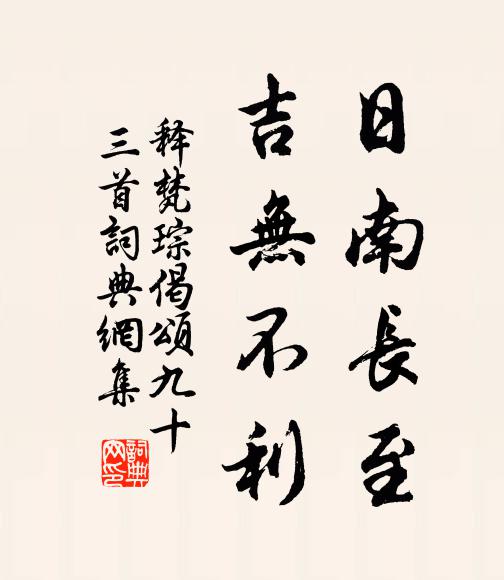 日南長至
吉無不利
释梵琮偈頌九十
三首詞典網集
詞典网印